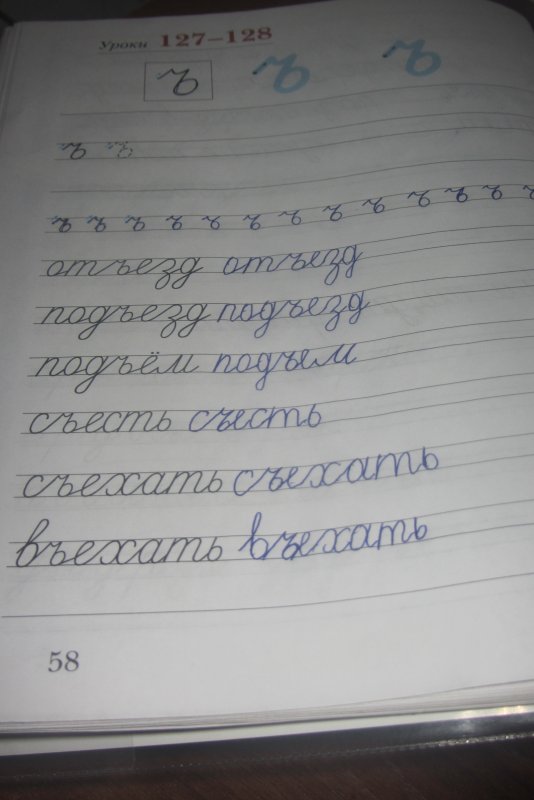 Уроки 127–128
ъ ъ ъ
ъ ъ
ъ ъ ъ ъ ъ ъ ъ ъ ъ ъ ъ ъ ъ
отъезд отъезд
подъезд подъезд
подъём подъем
съесть съесть
съехать съехать
въехать въехать
58